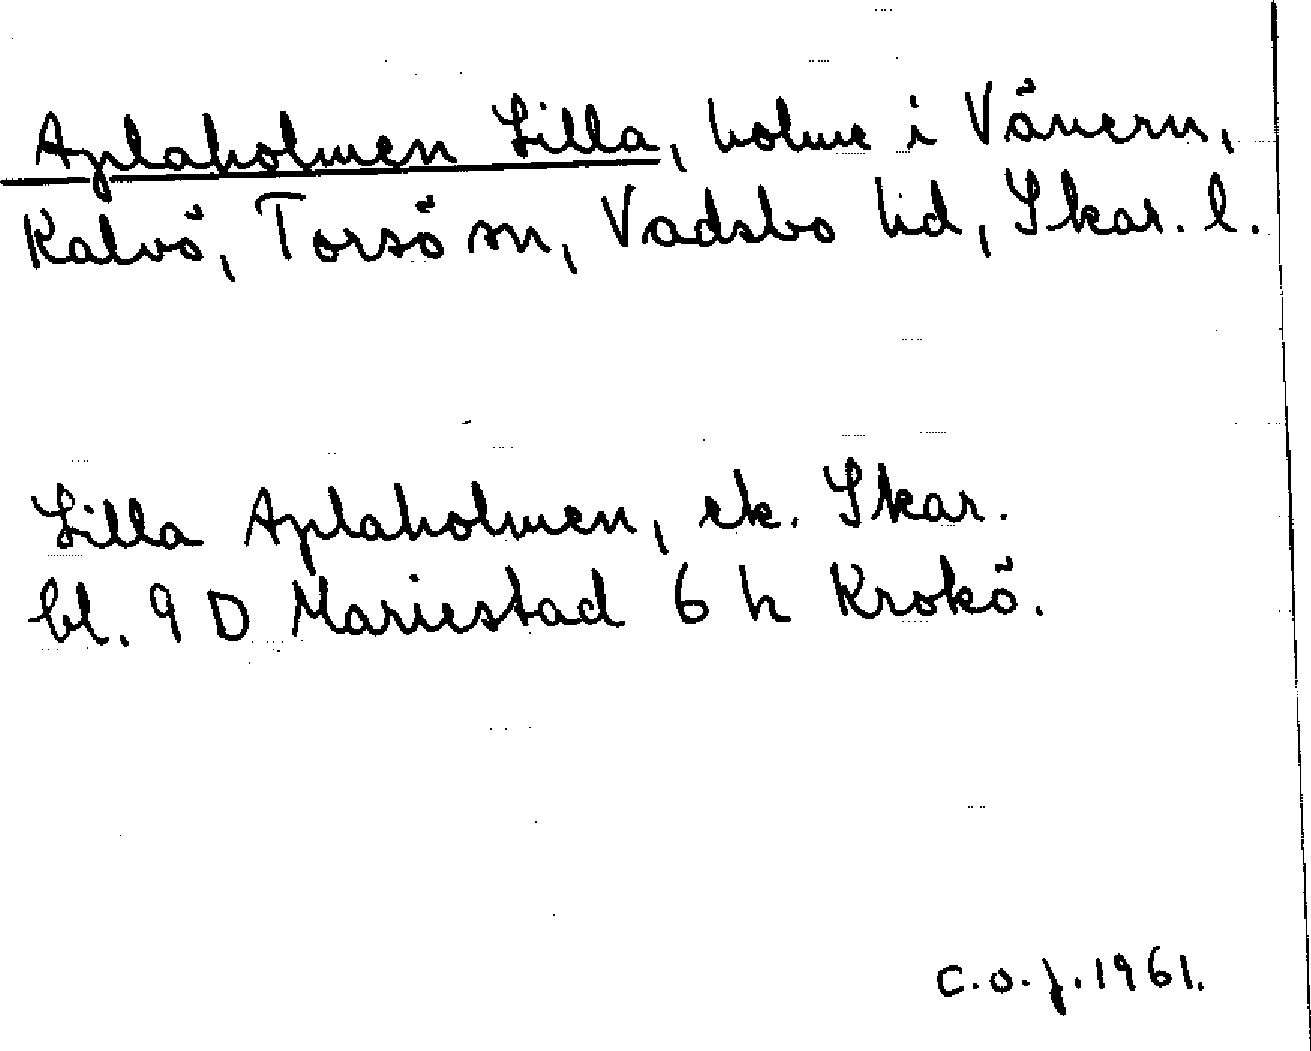 Aplaholmen Lilla, holme i Vänern,
Kalvö, Torsö sn, Vadsbo hd, Skar. l.
Lilla Aplaholmen, ek. Skar.
bl. 9 D Mariestad 6 h Krokö.
C.o.f. 1961.